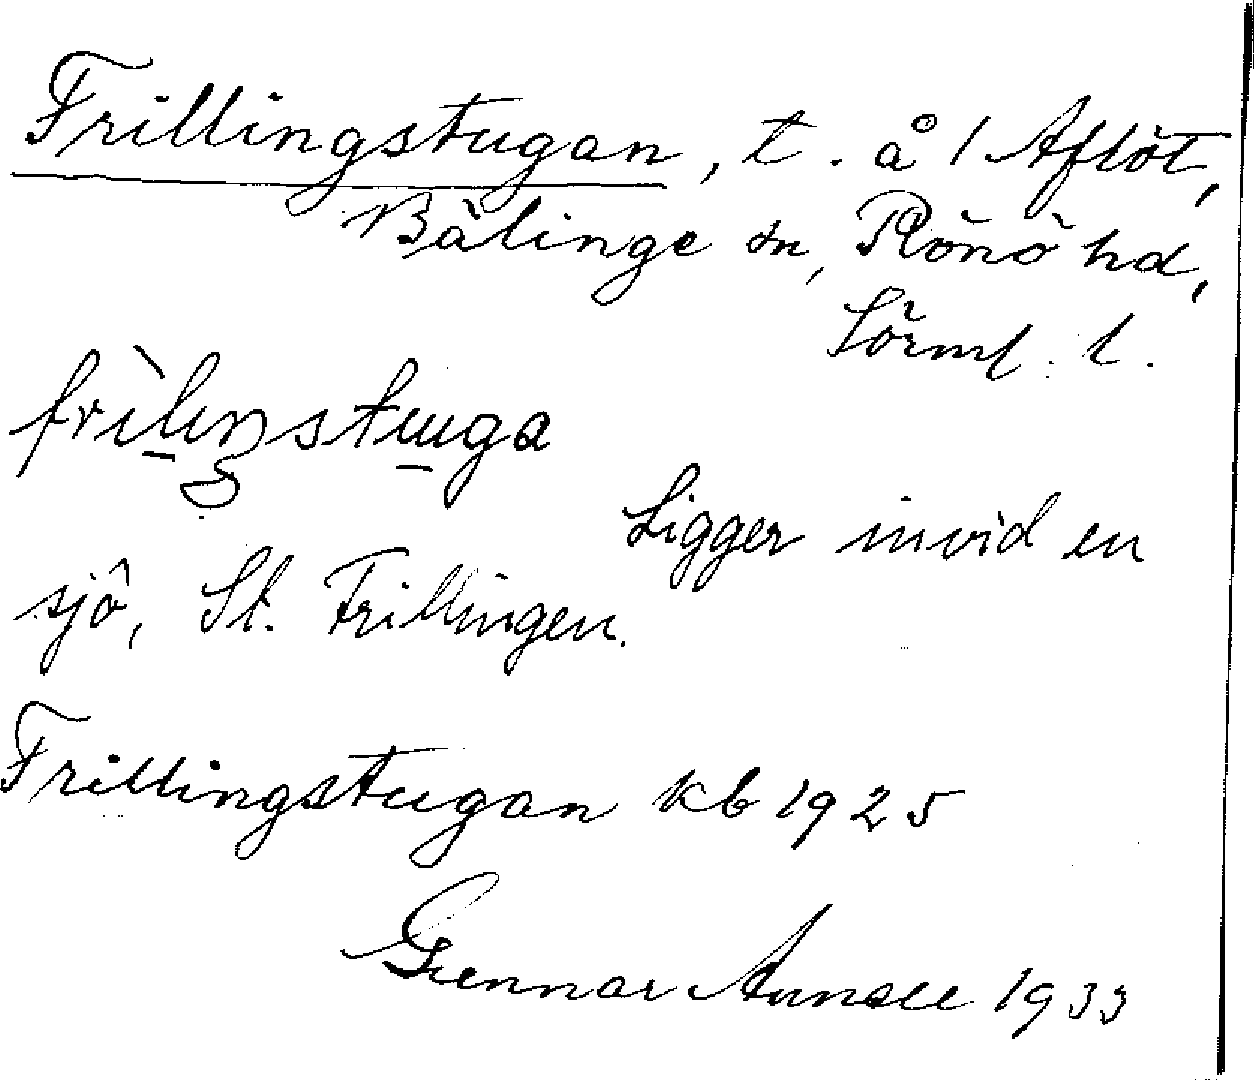 Frillingstugan, t. å 1 Aflöt,
Bälinge sn, Rönö hd,
Sörml. l.
Ligger invid en
sjö, St. Frillingen.
Frillingstugan kb 1925
Gunnar 1933